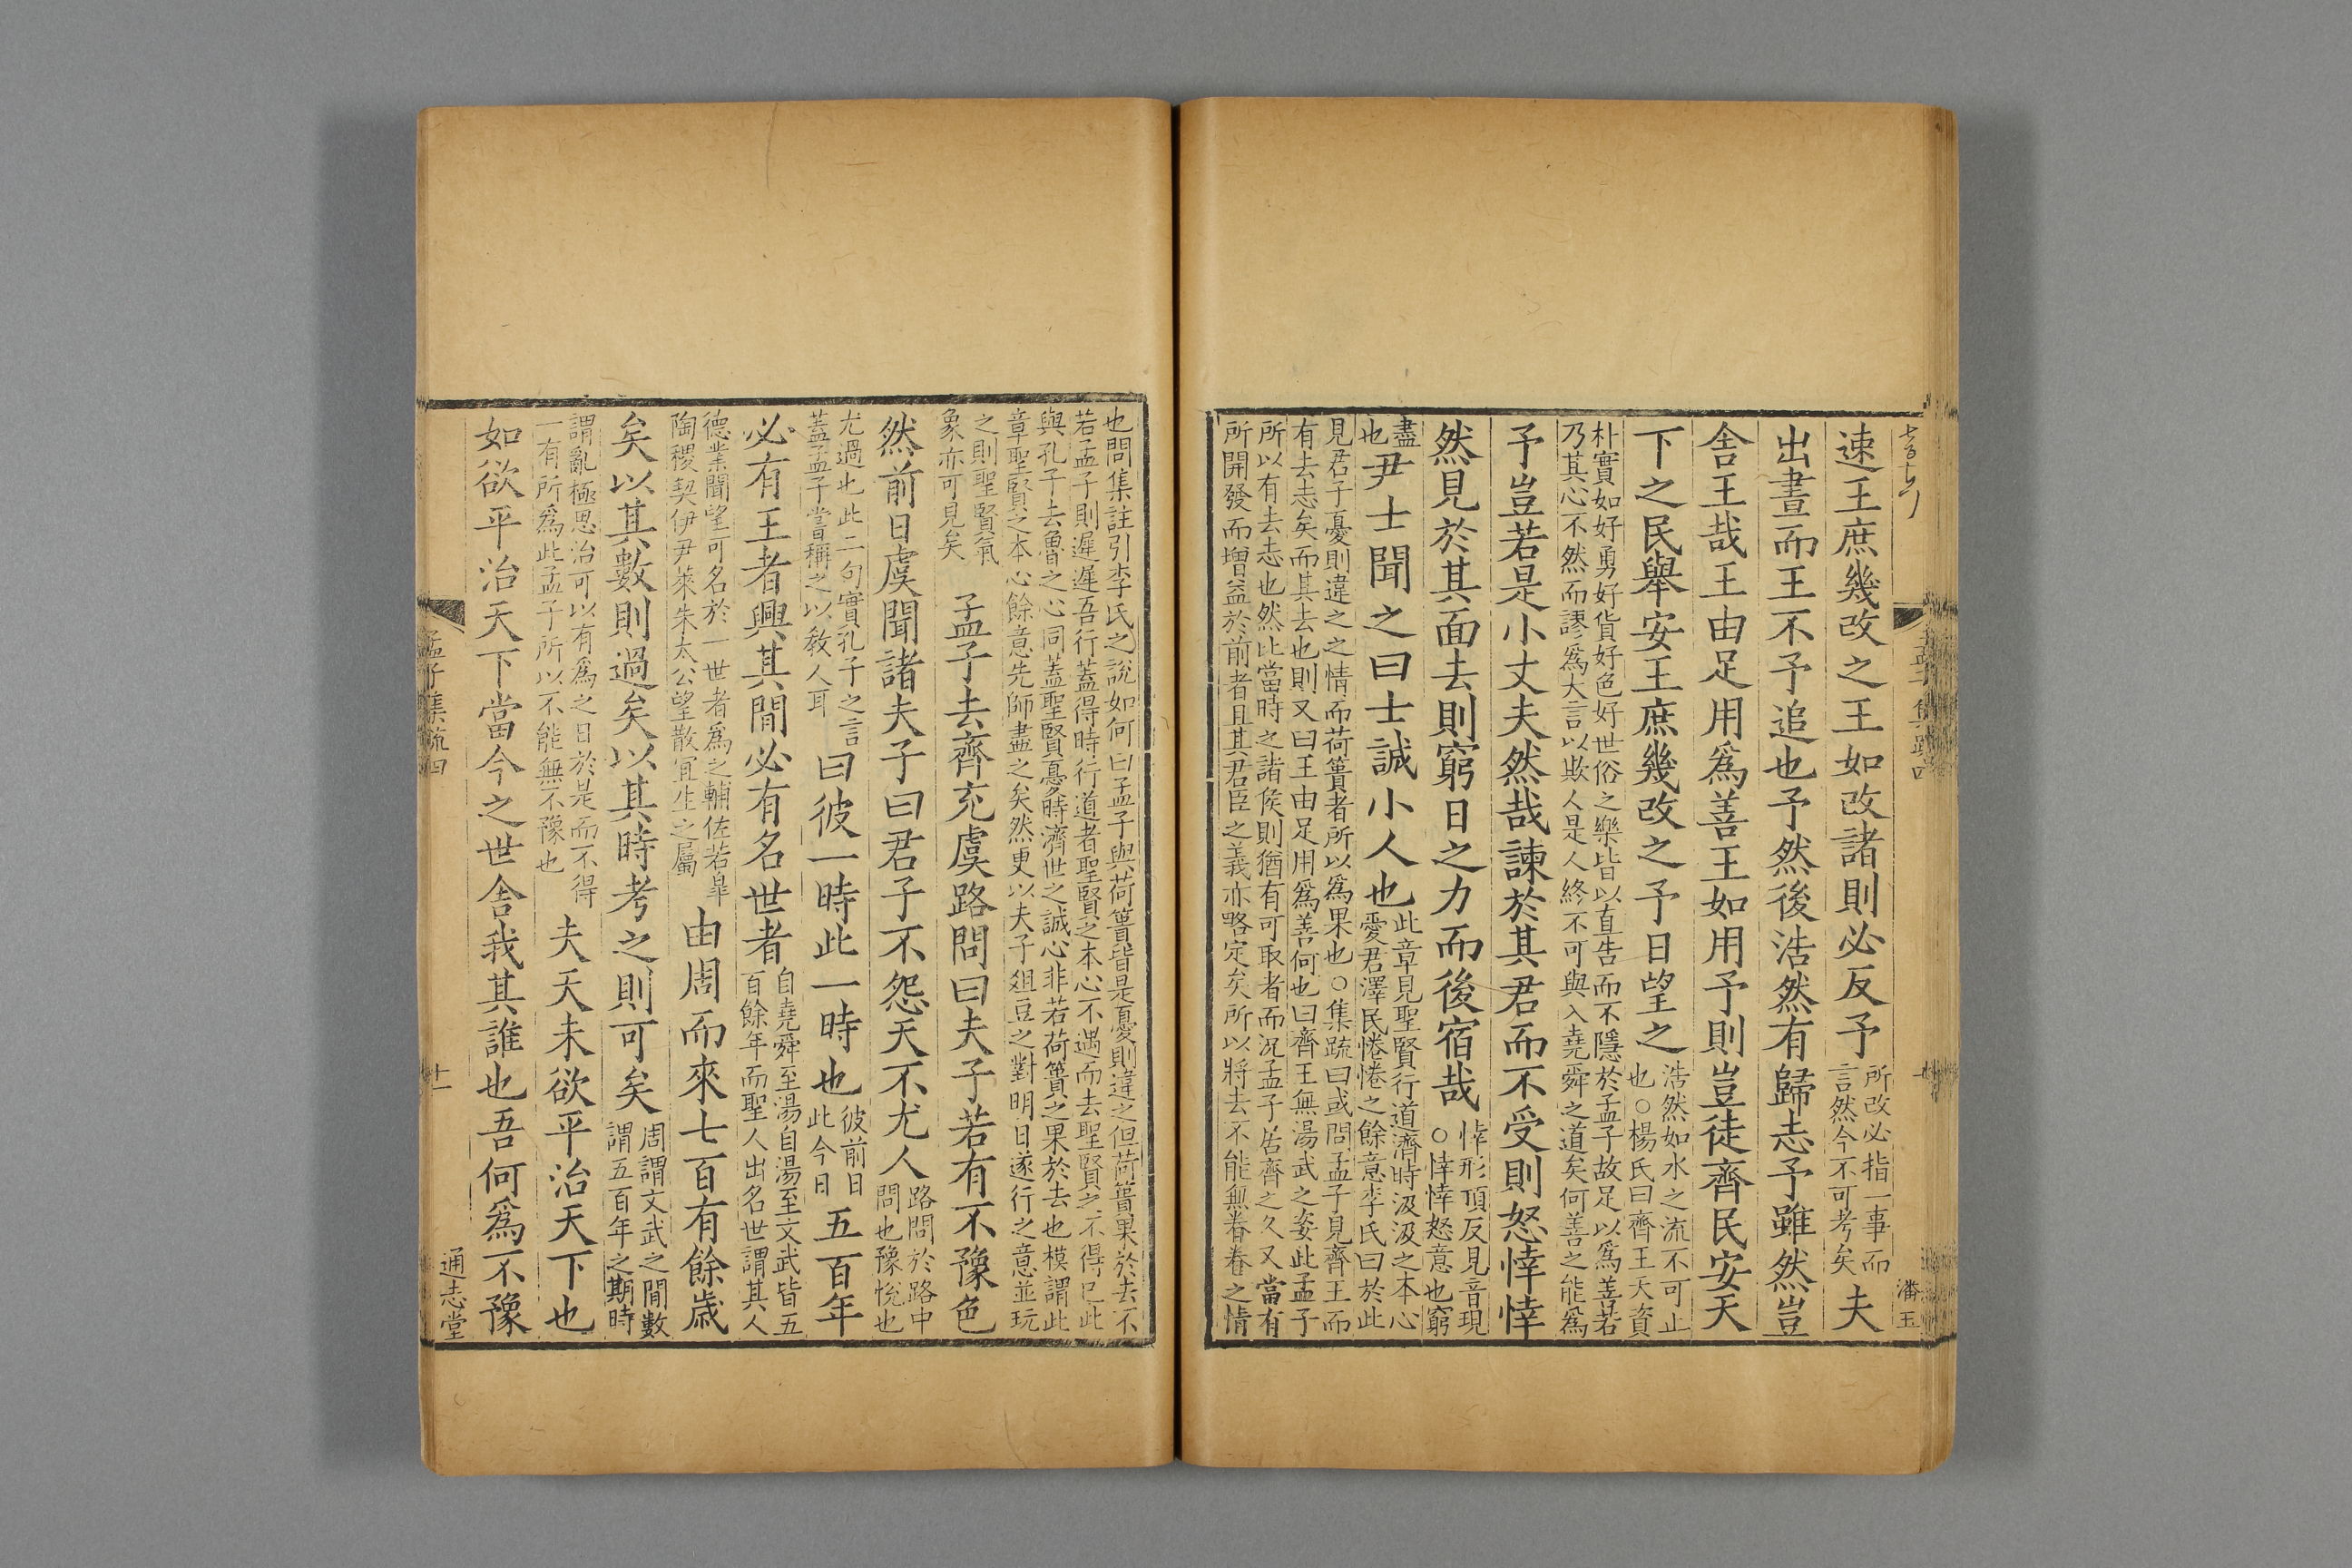 速王庶幾改之王如改諸則必反予所改必指一事而言然今不可考矣夫
出晝而王不予追也予然後浩然有歸志予雖然豈
舍王哉王由足用爲善王如用予則豈徒齊民安天
下之民舉安王庶幾改之予日望之浩然如水之流不可止也○楊氏曰齊王天資
朴實如好勇好貨好色好世俗之樂皆以直告而不隱於孟子故足以爲善若
乃其心不然而謬爲大言以欺人是人終不可與入堯舜之道矣何善之能爲
予豈若是小丈夫然哉諫於其君而不受則怒悻悻
然見於其面去則窮日之力而後宿哉悻形頂反見音現○悻悻怒意也窮
盡也尹士聞之曰士誠小人也此章見聖賢行道濟時汲汲之本心愛君澤民惓惓之餘意李氏曰於此
見君子憂則違之之情而荷蕢者所以爲果也○集疏曰或問孟子見齊王而
有去志矣而其去也則又曰王由足用爲善何也曰齊王無湯武之姿此孟子
所以有去志也然比當時之諸侯則猶有可取者而況孟子居齊之久又當有
所開發而增益於前者且其君臣之義亦略定矣所以將去不能無眷眷之情
潘玉
也問集註引李氏之說如何曰孟子與荷蕢皆是憂則違之但荷蕢果於去不
若孟子則遲遲吾行蓋得時行道者聖賢之本心不遇而去聖賢之不得已此
與孔子去魯之心同蓋聖賢憂時濟世之誠心非若荷蕢之果於去也模謂此
章聖賢之本心餘意先師盡之矣然更以夫子俎豆之對明日遂行之意並玩
之則聖賢氣象亦可見矣孟子去齊充虞路問曰夫子若有不豫色
然前日虞聞諸夫子曰君子不怨天不尤人路問於路中問也豫悅也
尤過也此二句實孔子之言蓋孟子嘗稱之以教人耳曰彼一時此一時也彼前日此今日五百年
必有王者興其間必有名世者自堯舜至湯自湯至文武皆五百餘年而聖人出名世謂其人
德業聞望可名於一世者爲之輔佐若臯陶稷契伊尹萊朱太公望散宜生之屬由周而來七百有餘歲
矣以其數則過矣以其時考之則可矣周謂文武之間數謂五百年之期時
謂亂極思治可以有爲之日於是而不得一有所爲此孟子所以不能無不豫也夫天未欲平治天下也
如欲平治天下當今之世舍我其誰也吾何爲不豫
孟子集疏四
十一
通志堂